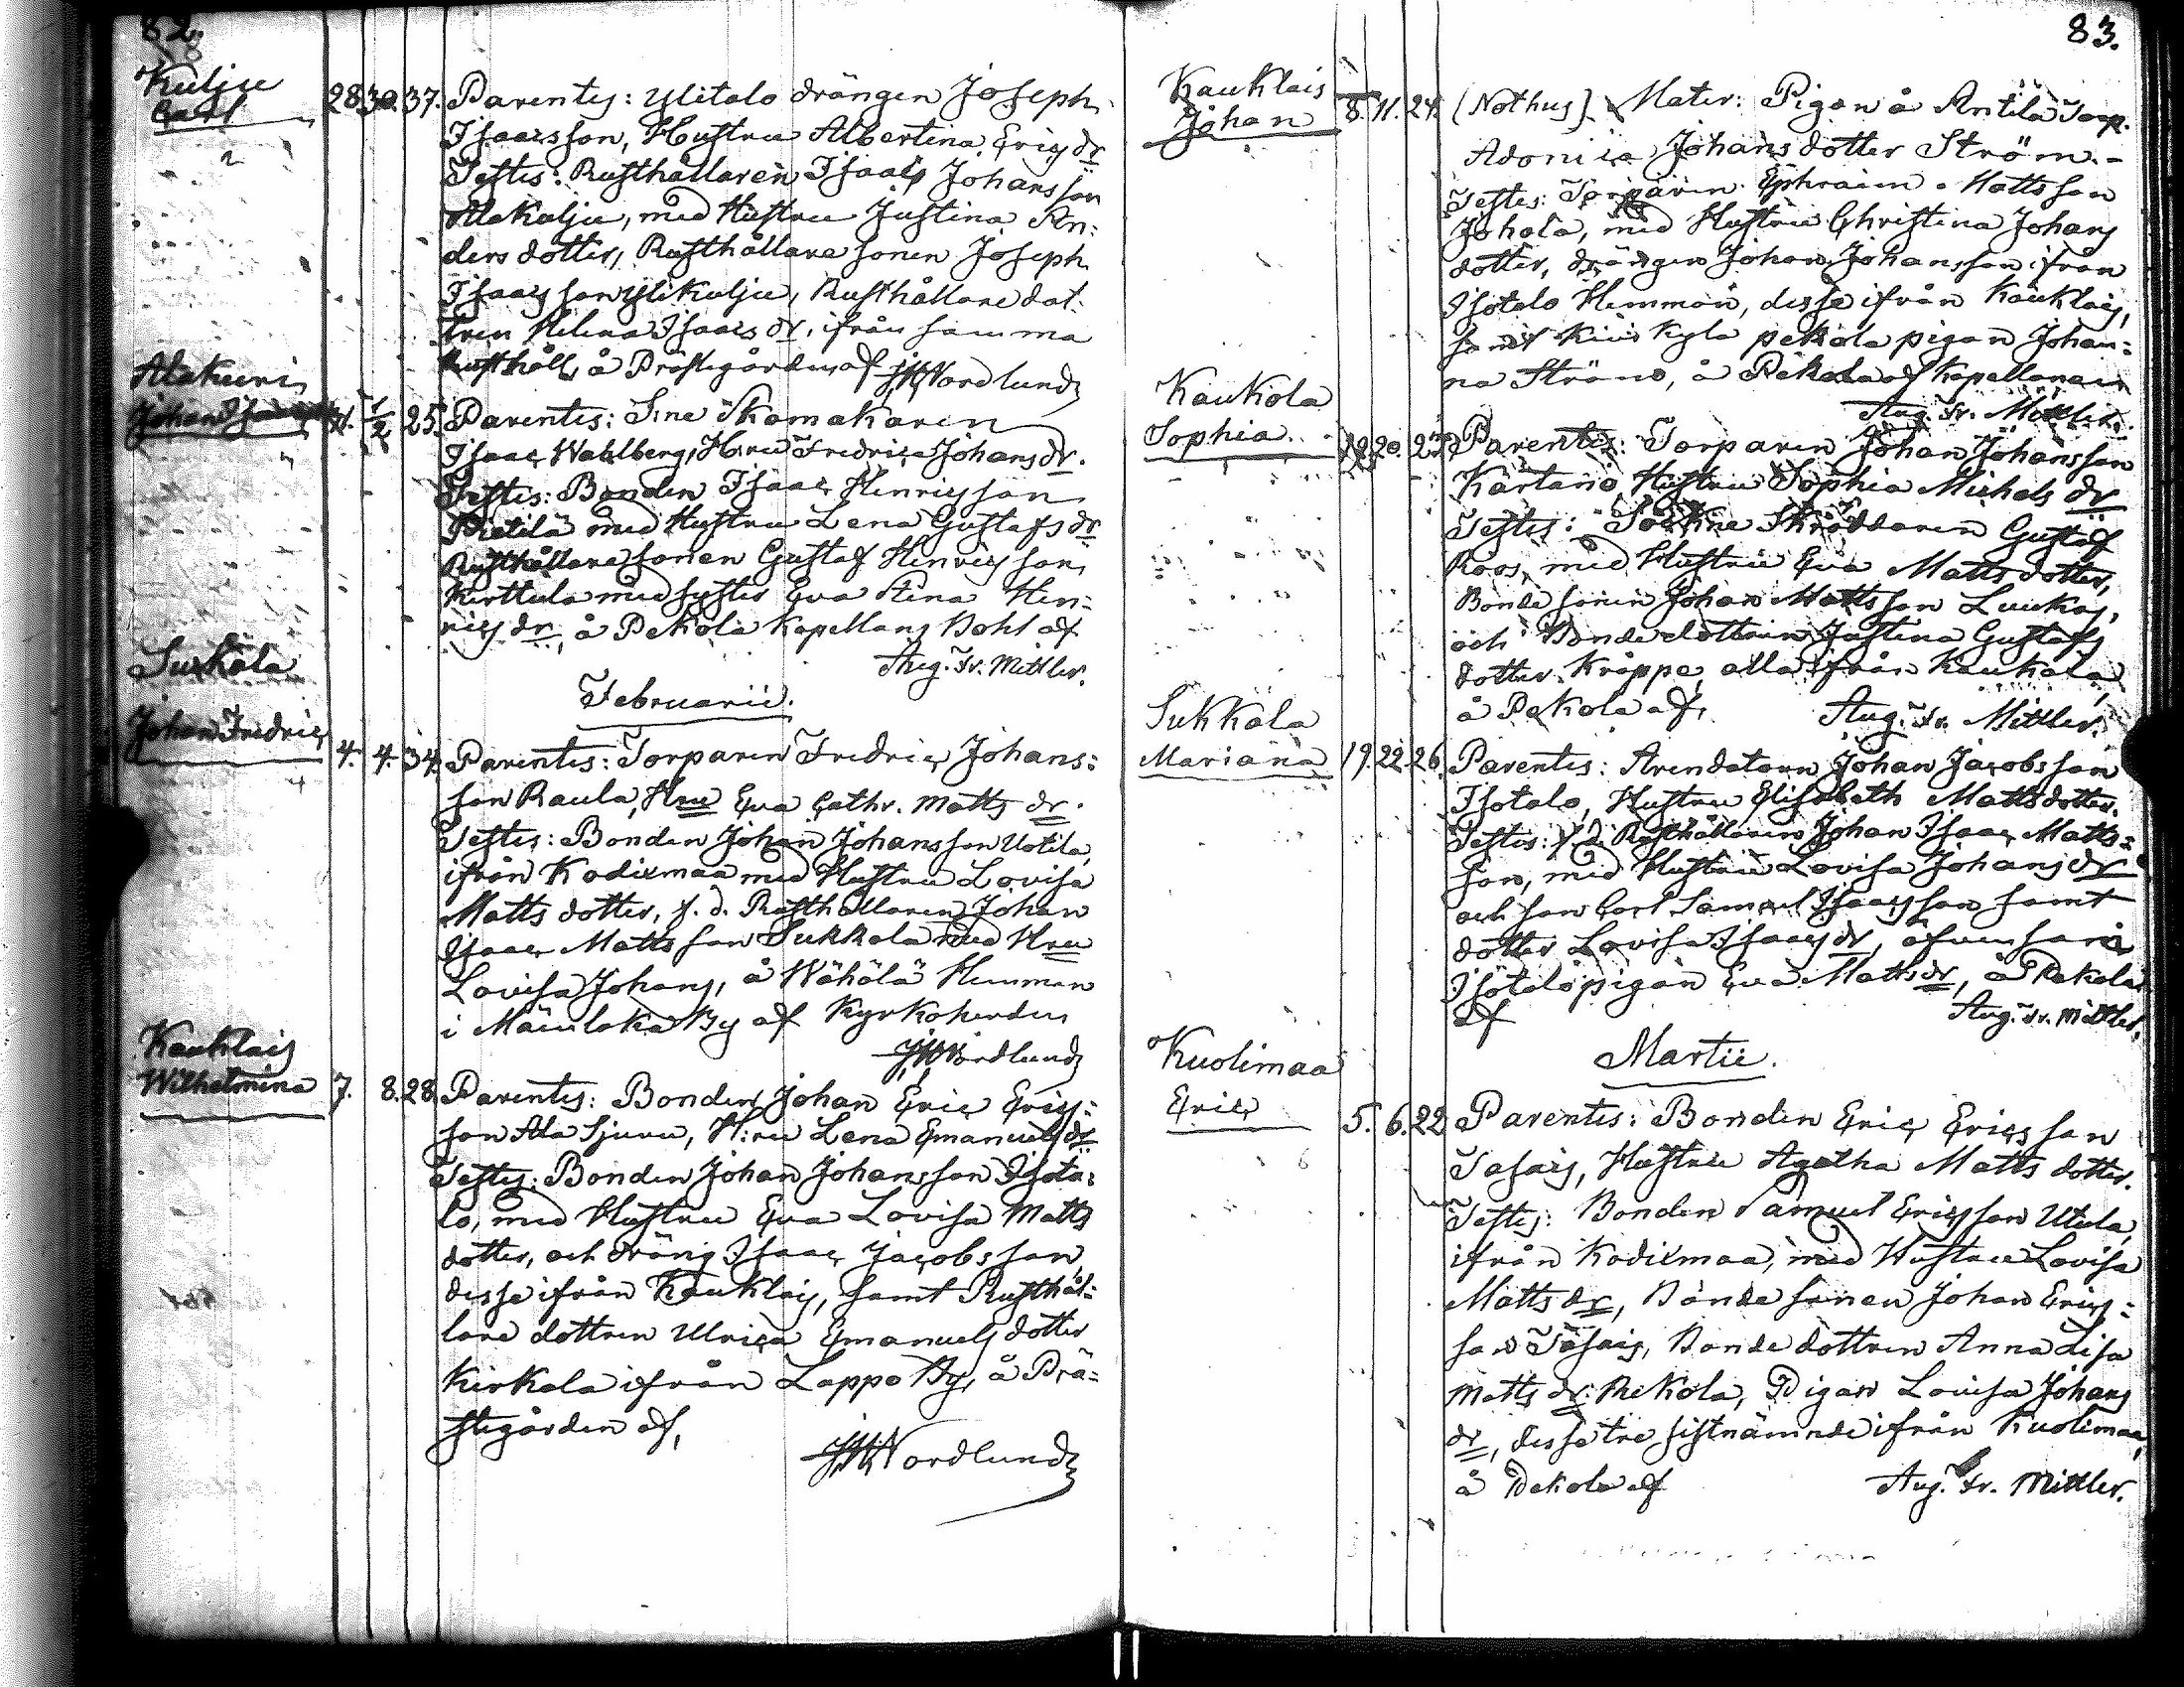 82.
Kulju
Carl
28. 30. 37. Parentes: Ylitalo drängen Joseph
Isaacsson, Hustru Albertina Ericsdr
Testes: Rusthållaren Isaac Johansson
Alakulju, med Hustru Justina An:
dersdotter, Rusthållare sonen Joseph
Isaacsson Ylikulju, Rusthållare dot:
tren Helena Isaacs dr, ifrån samma
Rusthåll, å Prästegården af JWNordlund
Alakuni
Johan
1/2 25. Parentes: S:ne Skomakaren
Isaac Wahlberg, H:ru Fredrica Johans dr.
Testes: Bonden Isaac Henricsson
Pietilä med Hustru Lena Gustafs dr
Rusthållare sonen Gustaf Henricsson
Kerttula med syster Eva Stina Hen:
rics dr, å Pekola Kapellans Bohl af
Aug. Fr. Mittler.
Februarii.
Sukkala
Johan Fredric
4. 4. 34. Parentes: Torparen Fredric Johans:
son Raula, Hru Eva Cathr. Matts dr.
Testes: Bonden Johan Johansson Uotila,
ifrån Kodixmaa med Hustru Lovisa
Matts dotter, f. d. Rusthållaren Johan
Isaac Mattsson Sukkala med Hru
Lovisa Johans, å Wähölä Hemman
i By af Kyrkoherden
JWNordlund
Kauklais
Wilhelmina
7. 8. 28. Parentes: Bonden Johan Eric Erics:
son Ala Sjuru, H:ru Lena Emanuels dr
Testes: Bonden Johan Johansson Isota:
lo, med Hustru Eva Lovisa Matts
dotter, och dräng Isaac Jacobsson,
desse ifrån Kauklais, samt Rusthål:
lare dottren Ulrica Emanuels dotter
Kirkola ifrån Lappo By, å Prä:
stegården af,
JWNordlund
83.
Kauklais
Johan
8. 11. 24. (Nothus) Mater: Pigan å Antila Torp.
Adonia Johans dotter Ström.-
Testes: Torparen Ephraim Mattsson
Johola, med Hustru Christina Johans
dotter, drängen Johan Johansson ifrån
Isotalo Hemman, desse ifrån Kauklais,
samt Kyla pekola pigan Johan:
na Ström, å Pekola af Kapellanen
Aug. Fr. Mittler.
Kaukola
Sophia.
19. 20. 23. Parentes: Torparen Johan Johansson
Kartano Hustru Sophia Michels dr
Testes: Skräddaren Gustaf
Roos, med Hustru Eva Matts dotter,
Bonde sonen Johan Mattsson Luukas,
och Bonde dottren Justina Gustafs
dotter Kråppe, alla ifrån Kaukola,
å Pekola af, Aug. Fr. Mittler.
Sukkala
Mariana
19. 22. 26. Parentes: Arendatorn Johan Jacobsson
Isotalo, Hustru Elisabeth Matts dotter.
Testes: f. d. Rusthållaren Johan Isaac Matts:
son, med Hustru Lovisa Johans dr
och son Carl Samuel Isaacsson samt
dotter Lovisa Isaacs dr,
Isotalo pigan Eva Matts dr, å Pekola
af Aug. Fr. Mittler.
Martii.
Kuolimaa
Eric
5. 6. 22. Parentes: Bonden Eric Ericsson
Tasais, Hustru Agatha Matts dotter.
Testes: Bonden Samuel Ericsson Utula,
ifrån Kodixmaa, med Hustru Lovisa
Matts dr, Bonde sonen Johan Erics:
son Tasais, Bonde dottren Anna Lisa
Matts dr. Pekola, Pigan Lovisa Johans
dr, desse tre sistnämnde ifrån Kuolimaa,
å Pekola af Aug. Fr. Mittler.